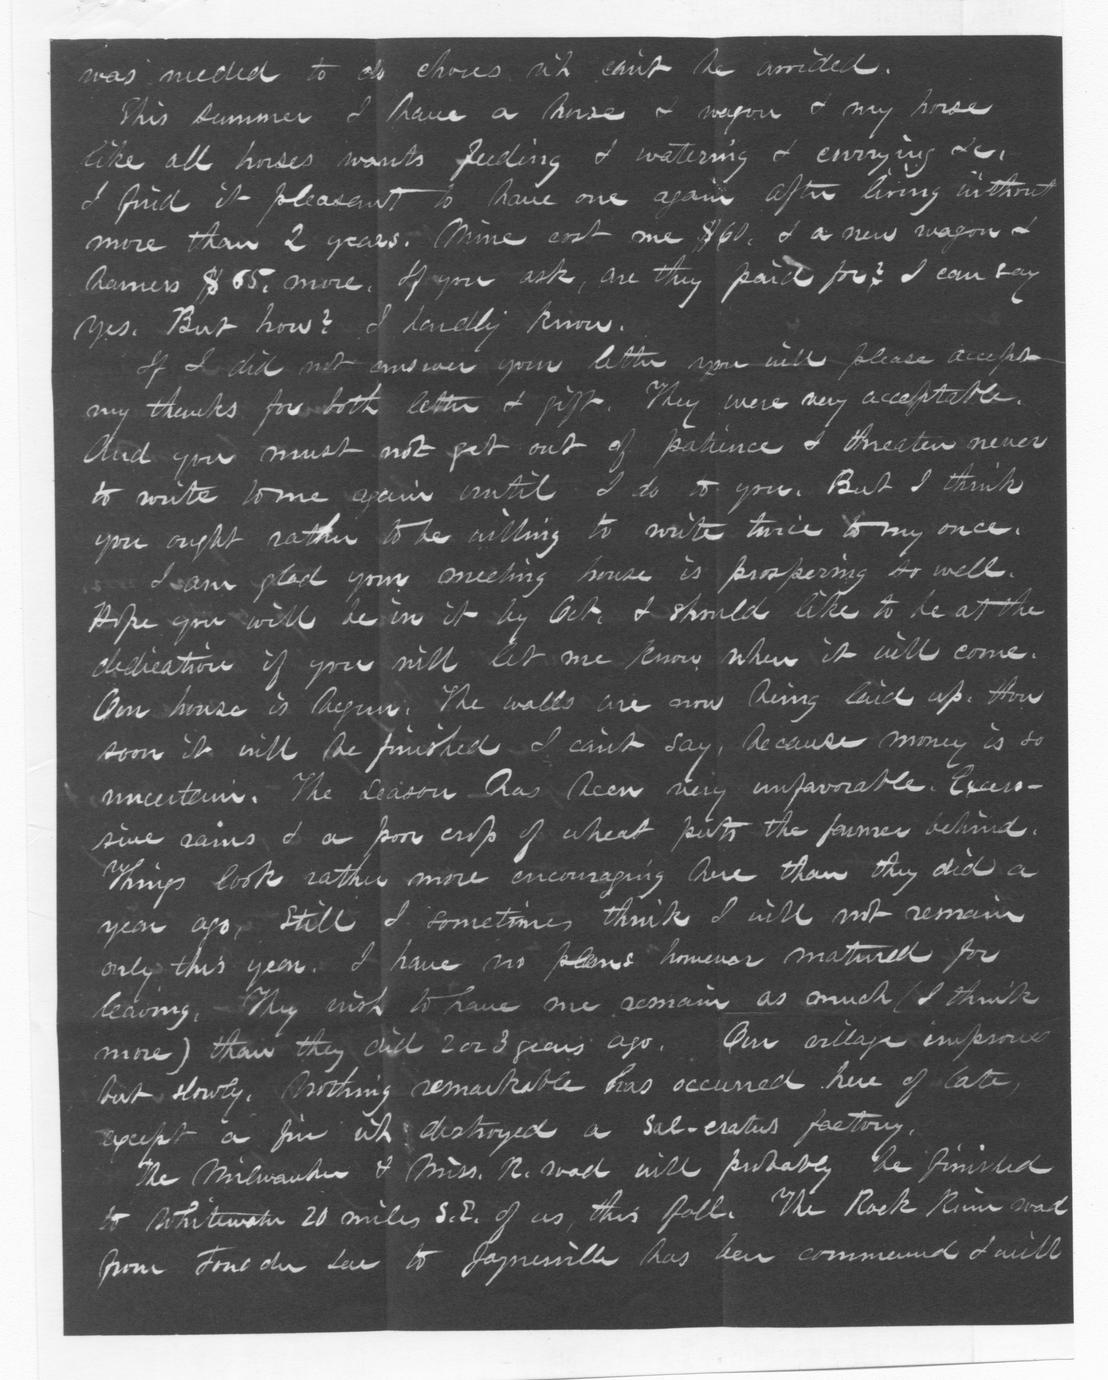 was needed to do chores wh cant be avoided.
This summer I have a horse & wagon & my horse
like all horses wants feeding & watering & currying &c.
I find it pleasant to have one again after living without
more than 2 years. Mine cost me $60. & a new wagon &
harness $65. more. If you ask, are they paid for? I can say
yes. But how? I hardly know.
If I did not answer your letter you will please accept
my thanks for both letter & gift. They were very acceptable.
And you must not get out of patience & threaten never
to write to me again until I do to you. But I think
you ought rather to be willing to write twice to my once.
I am glad your meeting house is prospering so well.
Hope you will be in it by Oct. I should like to be at the
dedication if you will let me know when it will come.
Our house is begun. The walls are now being laid up. How
soon it will be finished I cant say, because money is so
uncertain. The season has been very unfavorable. Exces-
sive rains & a poor crop of wheat puts the farmer behind.
Things look rather more encouraging here than they did a
year ago, still I sometimes think I will not remain
only this year. I have no plans however matured for
leaving. They wish to have me remain as much (I think
more) than they did 2 or 3 years ago. Our village improves
but slowly. Nothing remarkable has occurred here of late,
except a fire wh destroyed a Sal-eratus factory.
The Milwaukee & Miss. R. road will probably be finished
to Whitewater 20 miles S.E. of us, this fall. The Rock River road
from Fond du Lac to Jaynesville has been commenced & will